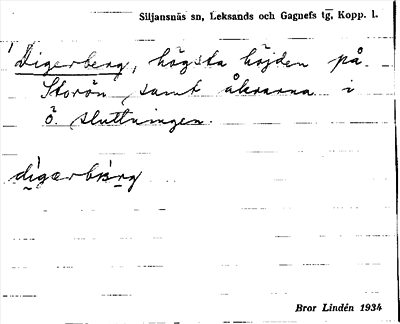 Siljansnäs sn, Leksands och Gagnefs tg, Kopp. l.
Digerberg, högsta höjden på
Storön, samt åkrarna i
ö. sluttningen.
Bror Lindén 1934